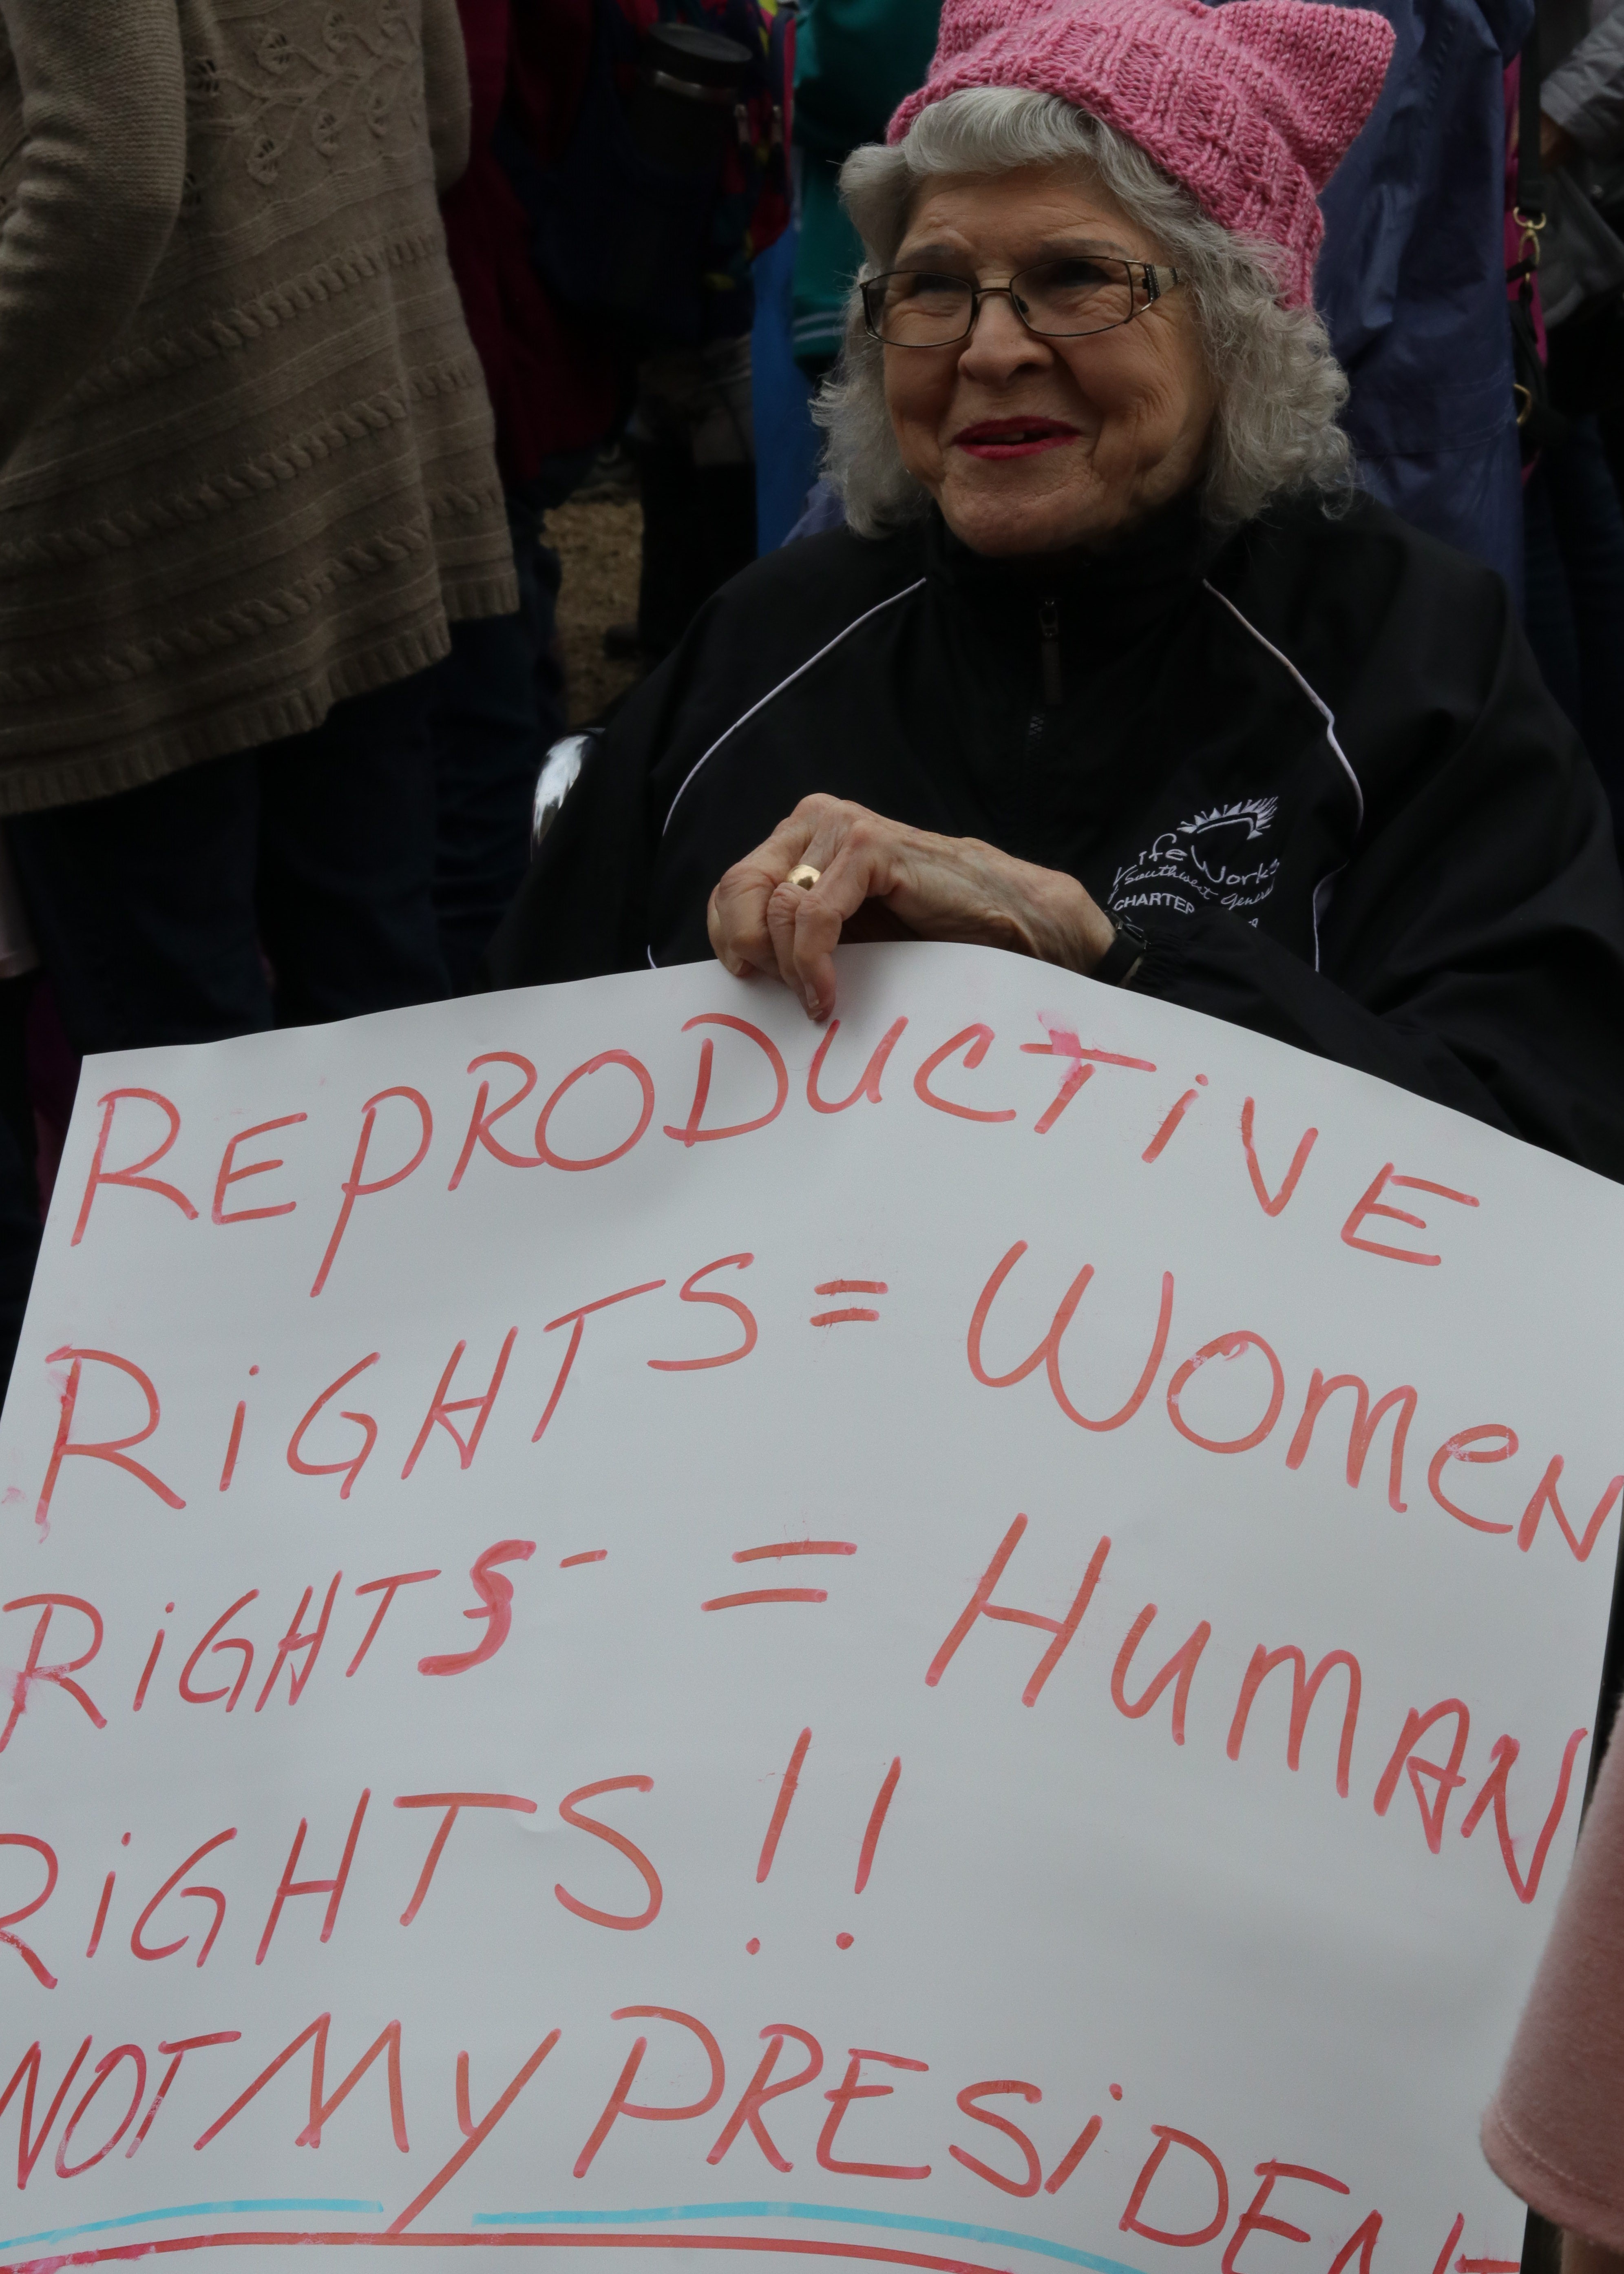 LifeWorks
of Southwest General
CHARTER
REPRODUCTIVE
RiGHTS = WOmeN
RiGHTS- = HumAN
RiGHTS!!
NOT My PRESiDENT